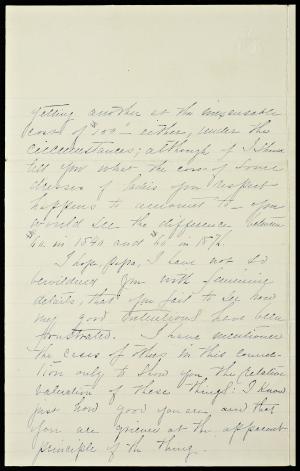 getting another at the inexcusable
cost of $100 - either, under the
circumstances; although if I should
tell you what the cost of some
dresses of ladies you respect
happens to amount to - you
would see the difference between
$60. in 1840 and $60 in 1876.
I hope, Papa, I have not so
bewildered you with feminine
details, that you fail to see how
my good intentions have been
frustrated. I have mentioned
the cases of others in this connec-
tion only to show you the relative
valuation of these things: I know
just how good you are, and that
you are grieved at the apparent
principle of the thing.